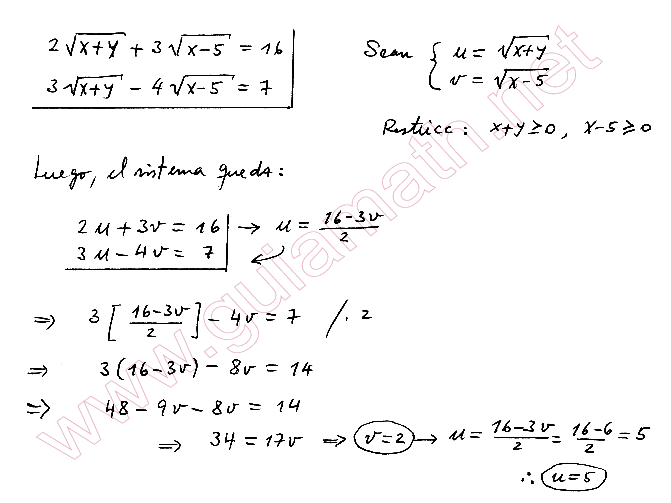 2√(x+y) + 3√(x-5) = 16
3√(x+y) - 4√(x-5) = 7
Sean { u = √(x+y)
v = √(x-5)
Restricc: x+y ≥ 0, x-5 ≥ 0
Luego, el sistema queda:
2u + 3v = 16 → u = (16-3v)/2
3u - 4v = 7
⇒ 3[(16-3v)/2] - 4v = 7 /· 2
⇒ 3(16-3v) - 8v = 14
⇒ 48 - 9v - 8v = 14
⇒ 34 = 17v ⇒ v=2 → u = (16-3v)/2 = (16-6)/2 = 5
∴ u=5
www.guiamath.net